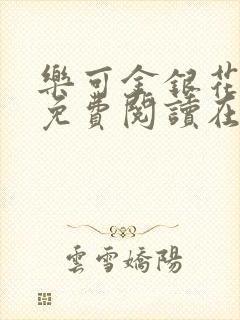 樂可金銀花
免費閱讀在
雲雪嬌陽